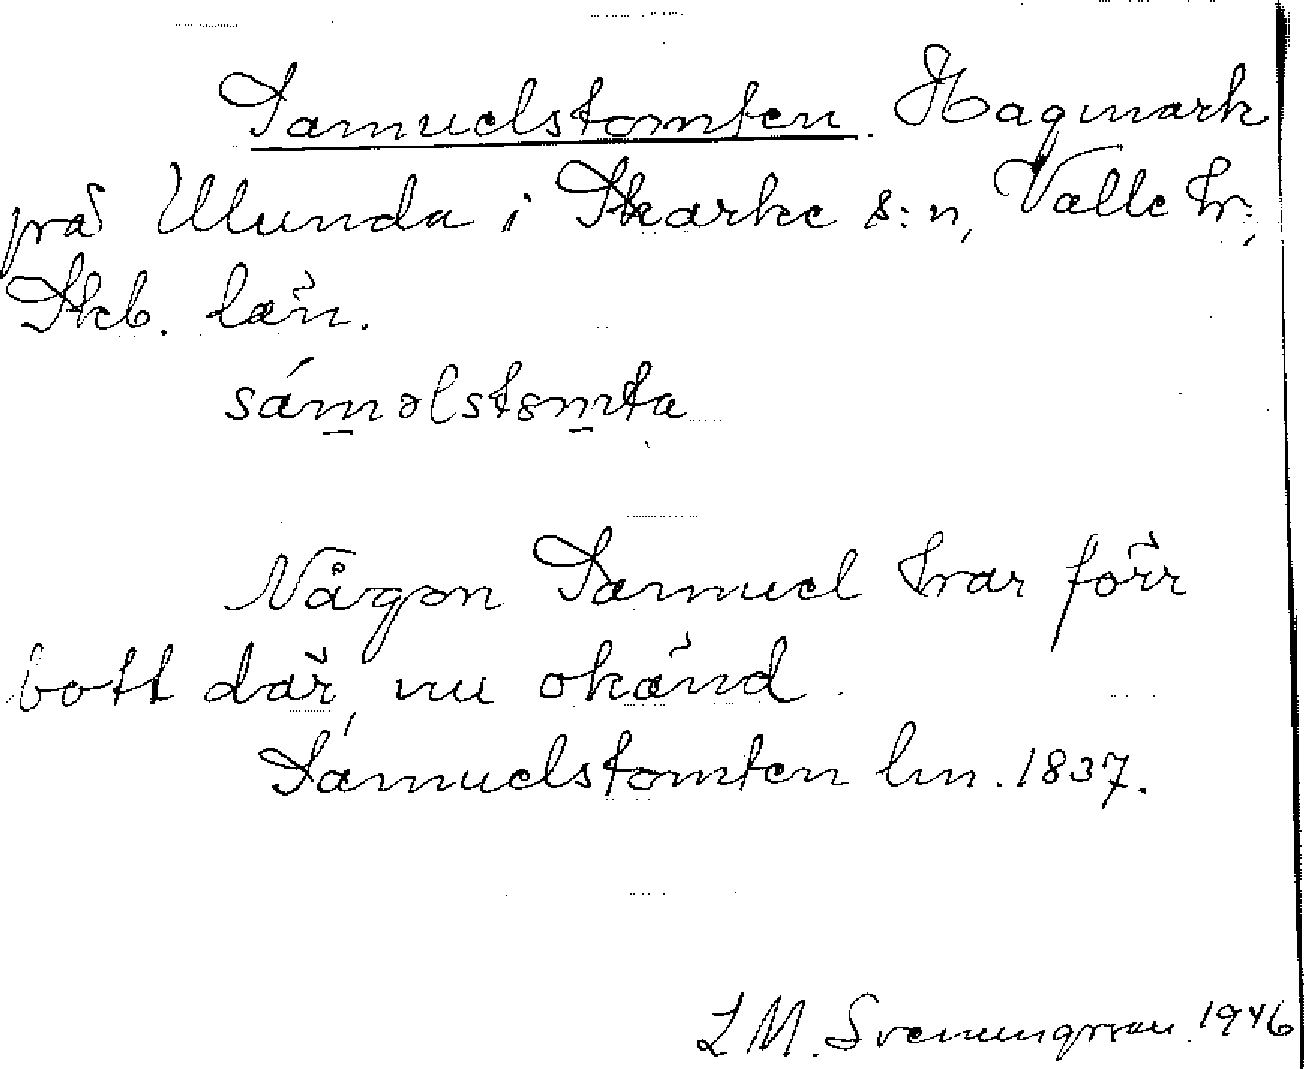 Samuelstomten. Hagmark
på Ulunda i Skarke s:n, Valle hr;
Skb. län.
sáməlstomta
Någon Samuel har förr
bott där, nu okänd.
Samuelstomten lm. 1837.
L M. Svenungsson. 1946